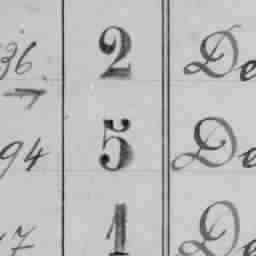 36 2 De
94 5 De
17 1 De